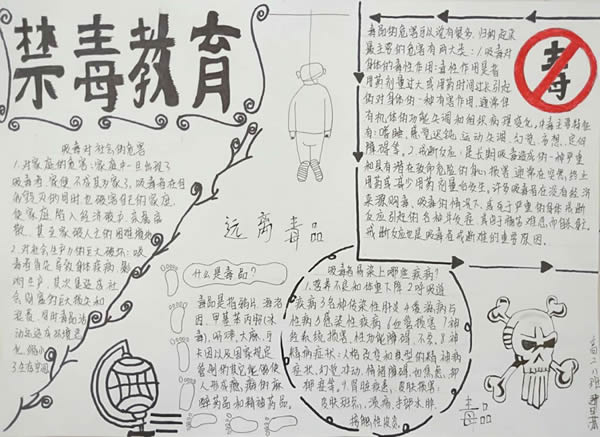 禁毒教育
吸毒对社会的危害
1.对家庭的危害:家庭中一旦出现了
吸毒者,家便不成其为家了。吸毒者在自
我毁灭的同时,也破害自己的家庭,
使家庭陷入经济破产、亲属离
散、甚至家破人亡的困难境地
2.对社会生产力的巨大破坏:吸
毒首先导致身体疾病,影
响生产,其次是造成社
会财富的巨大损失和
浪费,同时毒品活
动还造成环境恶
化,缩小了
人类生存空间
远离毒品
毒品的危害可以说有很多,归纳起来
最主要的危害有两大类:1.吸毒对
身体的毒性作用:毒性作用是指
用药剂量过大或用药时间过长引起
的对身体的一种有害作用,通常伴
有机体的功能失调和组织病理变化。中毒主要特征
有:嗜睡、感觉迟钝、运动失调、幻觉、妄想、定向
障碍等。2.戒断反应:是长期吸毒造成的一种严重
和具有潜在致命危险的身心损害,通常在突然终止
用药或减少用药剂量后发生。许多吸毒者在没有经济
来源购毒、吸毒的情况下,或死于严重的身体戒断
反应引起的各种并发症,或由于痛苦难忍而自杀身亡。
戒断反应也是吸毒者戒断难的重要原因。
毒
什么是毒品?
毒品是指鸦片、海洛
因、甲基苯丙胺(冰
毒)、吗啡、大麻、可
卡因以及国家规定
管制的其它能够使
人形成瘾癖的麻
醉药品和精神药品。
吸毒易染上哪些疾病?
1.营养不良和体重下降 2.呼吸道
疾病 3.各种传染性肝炎 4.艾滋病与
性病 5.感染性疾病 6.血管损害 7.神
经系统损害、性功能障碍、不孕、8.神
精病症状:人格改变和典型的精神病
症状、幻觉、冲动、情绪障碍,如焦虑、抑
抑郁等。9.肾脏疾患、皮肤损害:
皮肤斑疹、溃疡、手部水肿、
接触性皮炎。
毒品